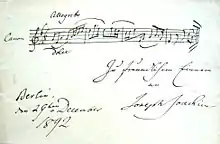 Allegretto
Canon
Zu freundlichem Erinnern
an
Joseph Joachim
Berlin,
December
1892